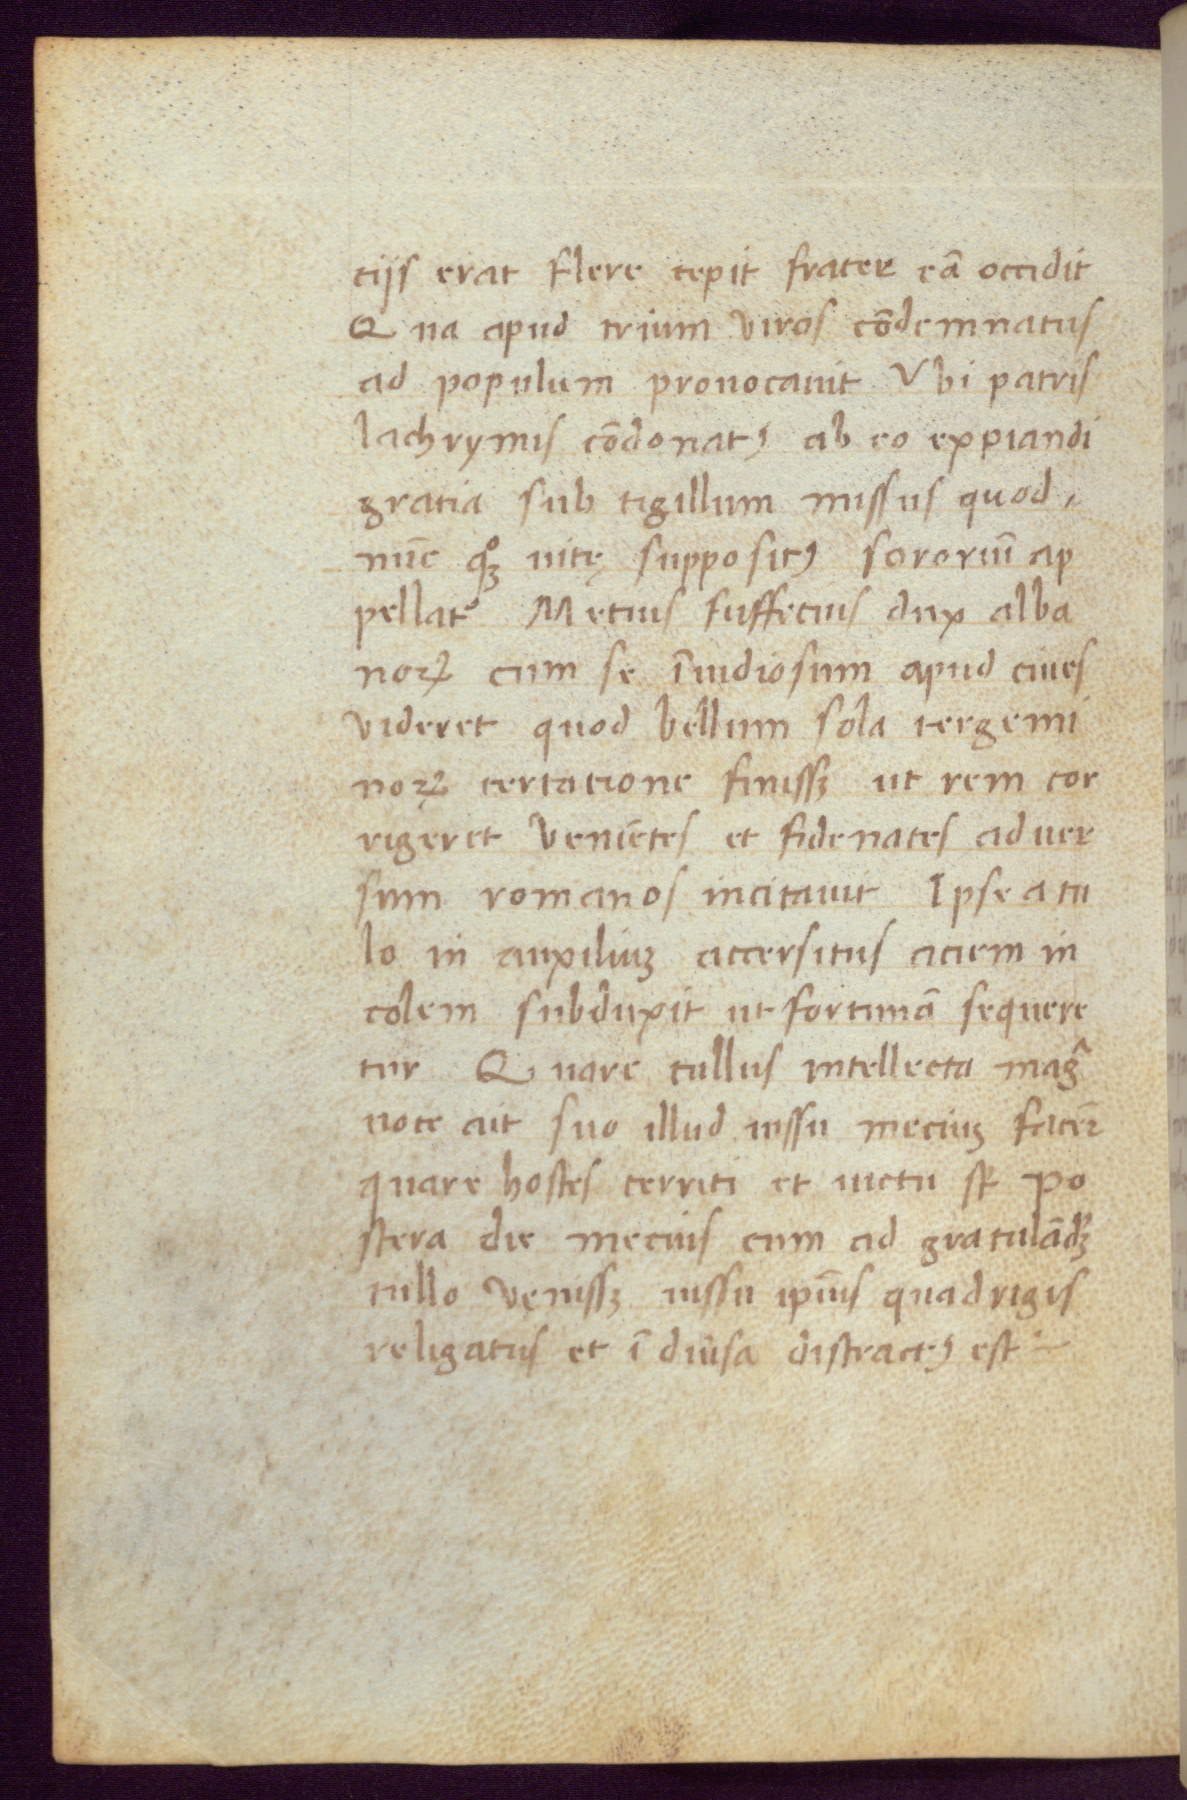 ciis erat flere cepit frater eā occidit
Qua apud trium viros cōdemnatus
ad populum prouocauit Vbi patris
lachrymis cōdonatꝰ ab eo expiandi
gratia sub tigillum missus quod,
nūc qͦꝫ uitę suppositꝰ sororiū ap
pellat᷑ Metius fuffetius dux alba
noꝝ cum se īuidiosum apud ciues
videret quod bellum sola tergemi
noꝝ certatione finissꝫ ut rem cor
rigeret Veniētes et fidenates aduer
sum romanos incitauit Ipse a tu
lo in auxiliuꝫ accersitus aciem in
colem subduxit ut fortunā sequere
tur Quare tullus intellecta magͣ
uoce ait suo illud iussu meciuꝫ facer̄
quare hostes territi et uicti sͭ Po
stera die mecius cum ad gratulādꝫ
tullo Venissꝫ iussu ipīus quadrigis
religatus et ī diu̾sa distractꝰ est